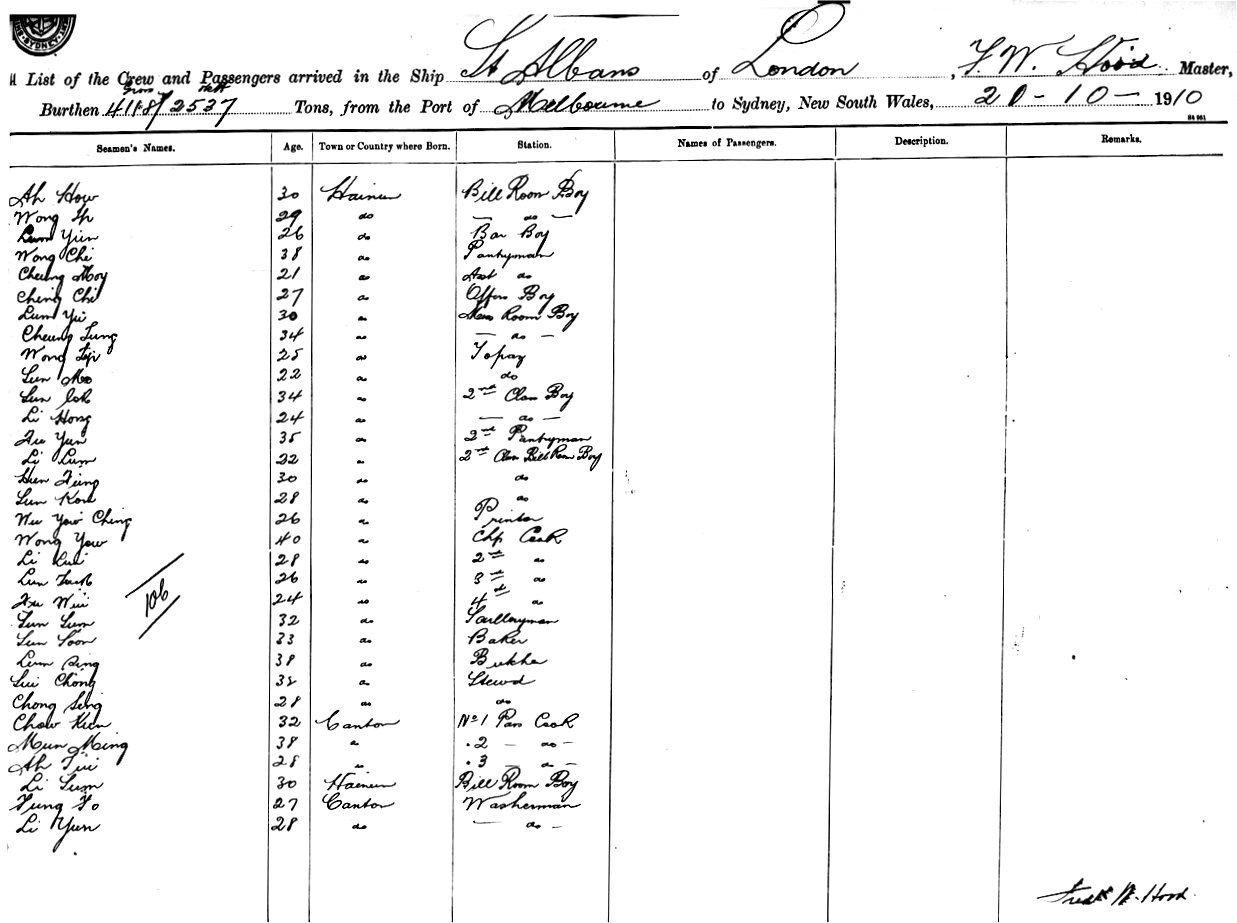 SYDNEY
A List of the Crew and Passengers arrived in the Ship St Albans of London, F. W. Hood Master,
Gross Nett
Burthen 4118/2537 Tons, from the Port of Melbourne to Sydney, New South Wales, 20-10-1910
Seamen's Names. Age. Town or Country where Born. Station. Names of Passengers. Description. Remarks.
Ah How 30 Hainen Bill Room Boy
Wong 29 do — do —
Lum Yien 26 do Bar Boy
Wong Chi 38 do Pantryman
Cheung Moy 21 do Asst do
Cheng Chi 27 do Offrs Boy
Lum Yu 30 do Mess Room Boy
Cheung Tung 34 do — do —
Wong 25 do Topaz
Lun Mo 22 do do
Lun 34 do 2nd Class Boy
Li Hong 24 do — do —
Fu Yun 35 do 2nd Pantryman
Li Lum 22 do 2nd Class Bill Room Boy
Hun Fung 30 do do
Lun Kon 28 do do
Wu Yow Ching 26 do Printer
Wong Yow 40 do Chf Cook
Li Kui 28 do 2nd do
Lun 26 do 3rd do
Fu Wui 24 do 4th do
106
Lun Lum 32 do Sculleryman
Lun Soon 33 do Baker
Lum Sing 38 do Butcher
Lui Chong 32 do Stewd
Chong Seng 28 do do
Chow Kien 32 Canton No 1 Pass Cook
Mun Ming 38 do . 2 — do —
Ah Tui 28 do . 3 — do —
Li Sum 30 Hainen Bill Room Boy
Fung Fo 27 Canton Washerman
Li Yun 28 do — do —
Fredk W. Hood